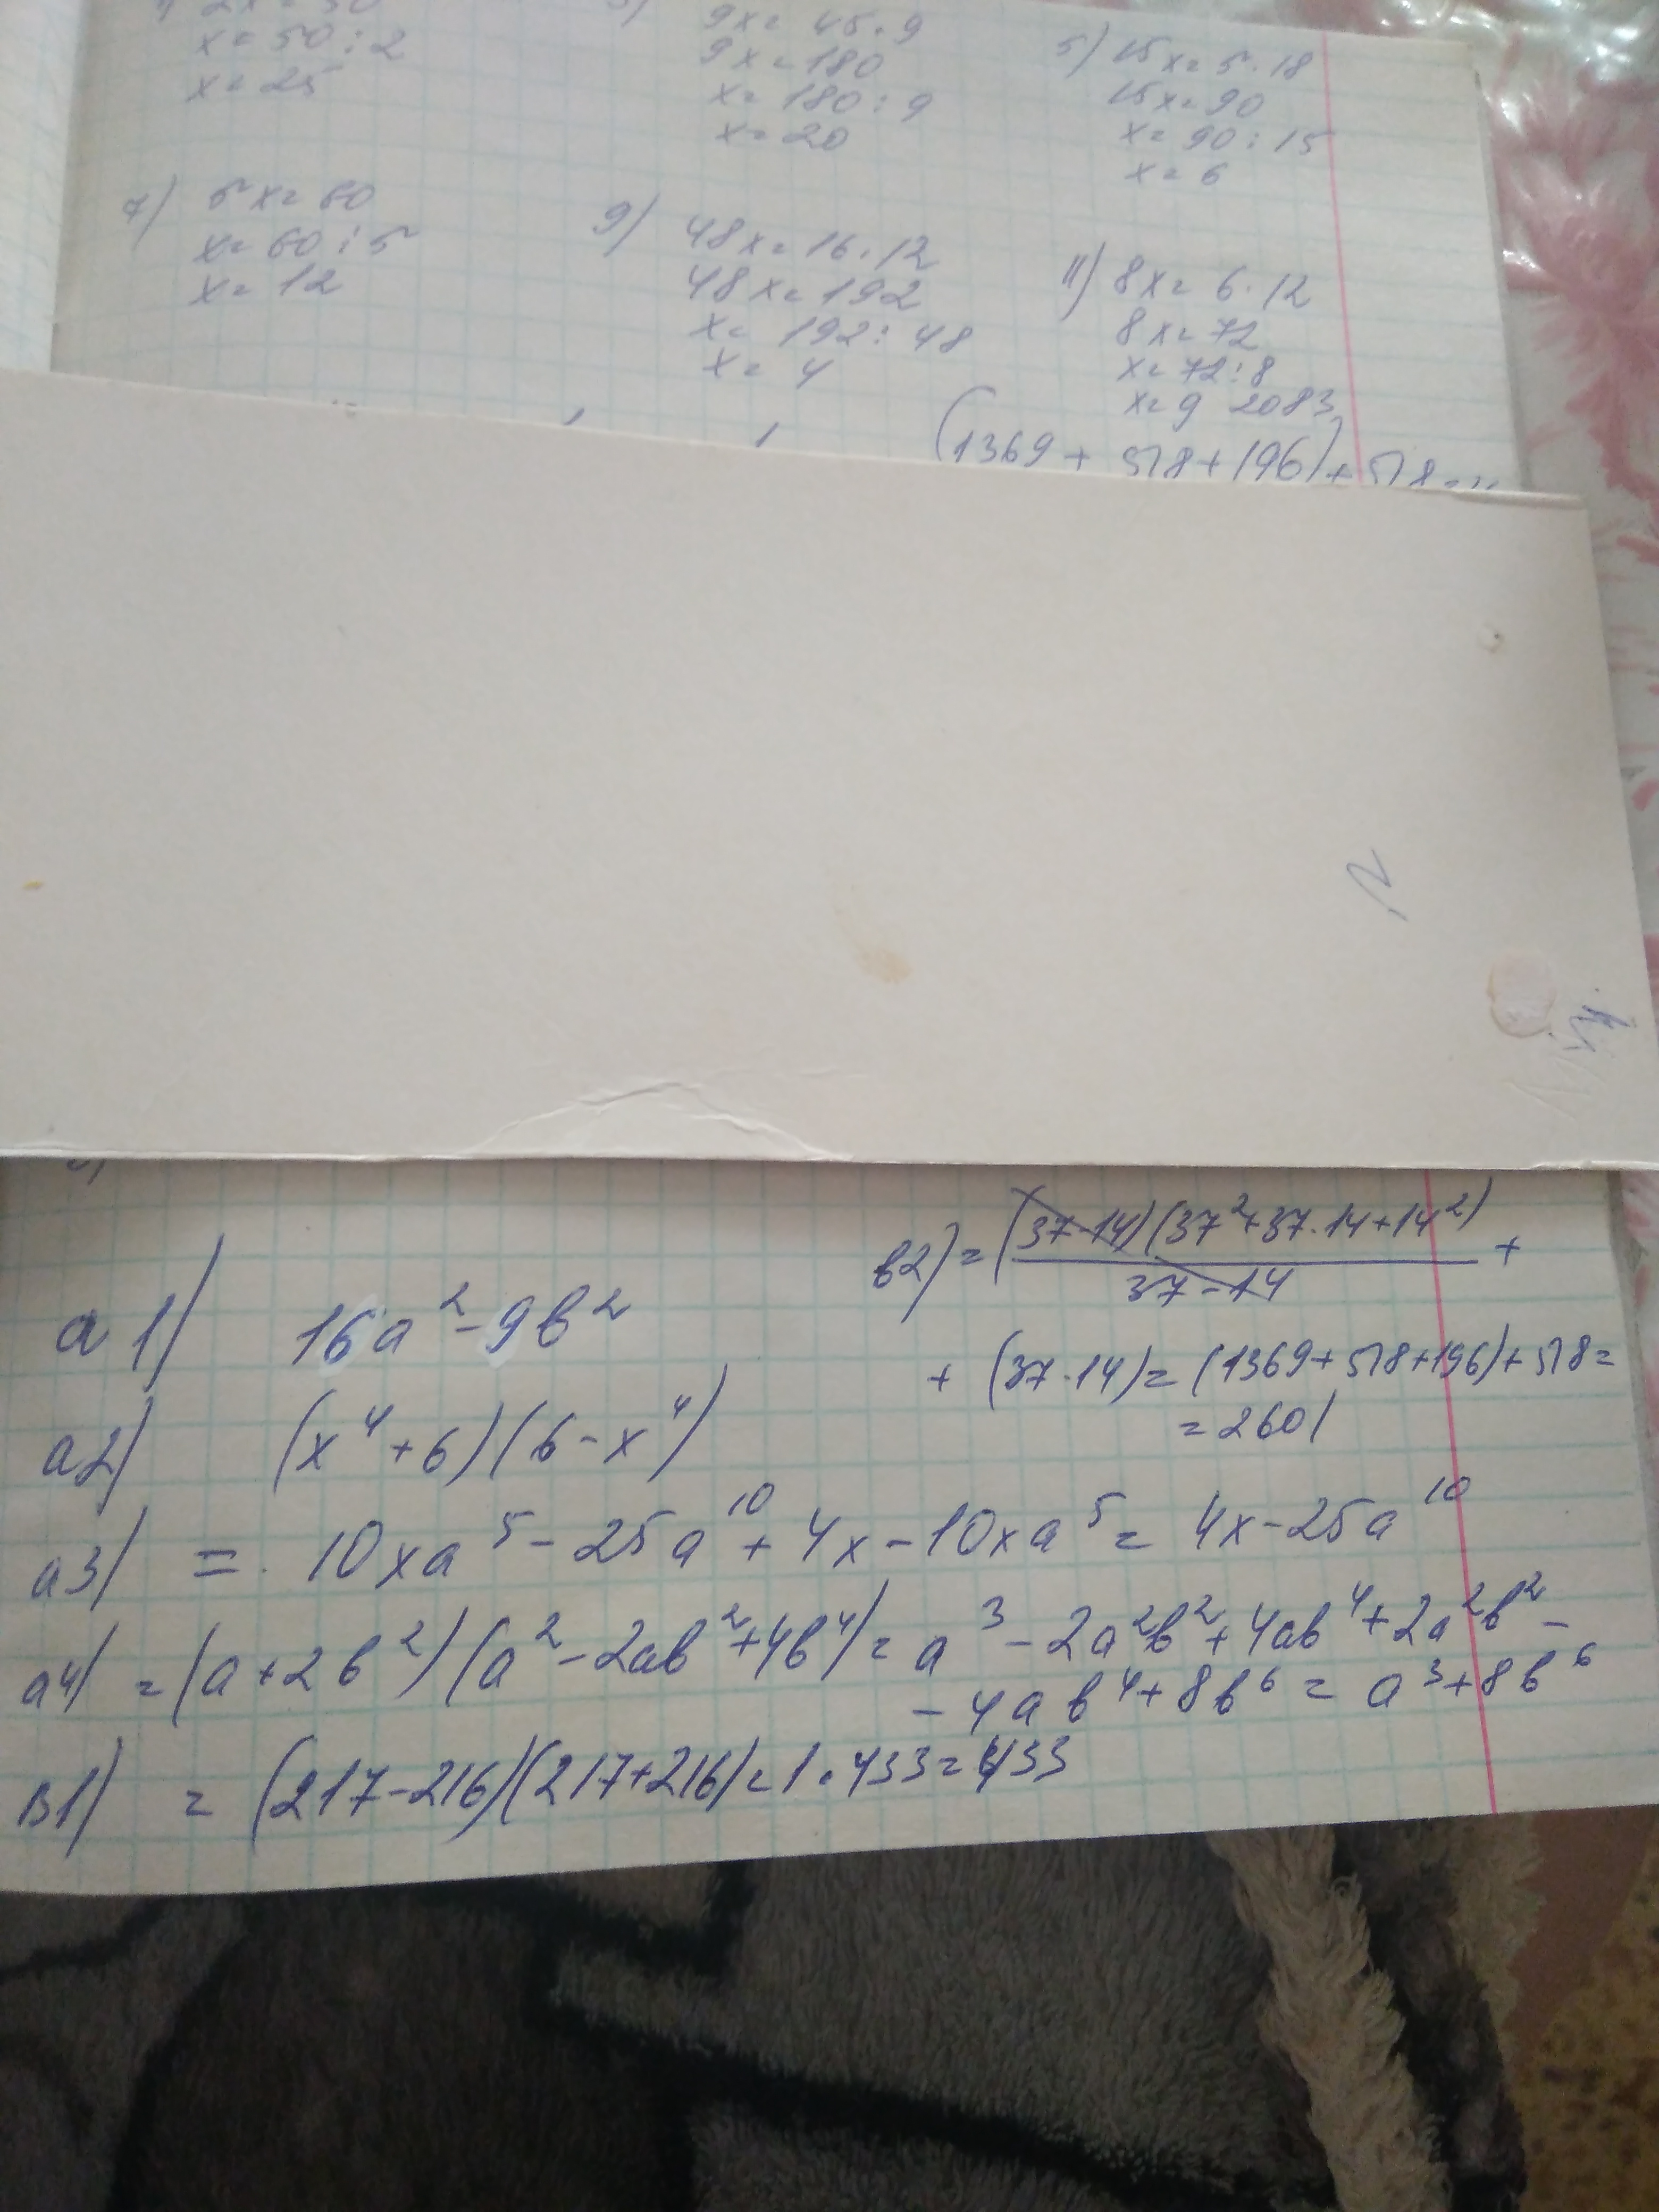 1) 2x = 50
x = 50 : 2
x = 25
9x = 45 · 9
9x = 180
x = 180 : 9
x = 20
5) 15x = 5 · 18
15x = 90
x = 90 : 15
x = 6
7) 5x = 60
x = 60 : 5
x = 12
9) 48x = 16 · 12
48x = 192
x = 192 : 48
x = 4
11) 8x = 6 · 12
8x = 72
x = 72 : 8
x = 9 2083
(1369 + 518 + 196) + 518 =
в2) = (37-14)(37²+37·14+14²) / 37-14 +
+ (37·14) = (1369+518+196)+518 =
= 2601
а1) 16a² - 9b²
а2) (x⁴+6)(6-x⁴)
а3) = 10xa⁵ - 25a¹⁰ + 4x - 10xa⁵ = 4x - 25a¹⁰
а4) = (a+2b²)(a²-2ab²+4b⁴) = a³ - 2a²b² + 4ab⁴ + 2a²b² -
- 4ab⁴ + 8b⁶ = a³+8b⁶
в1) = (217-216)(217+216) = 1 · 433 = 433